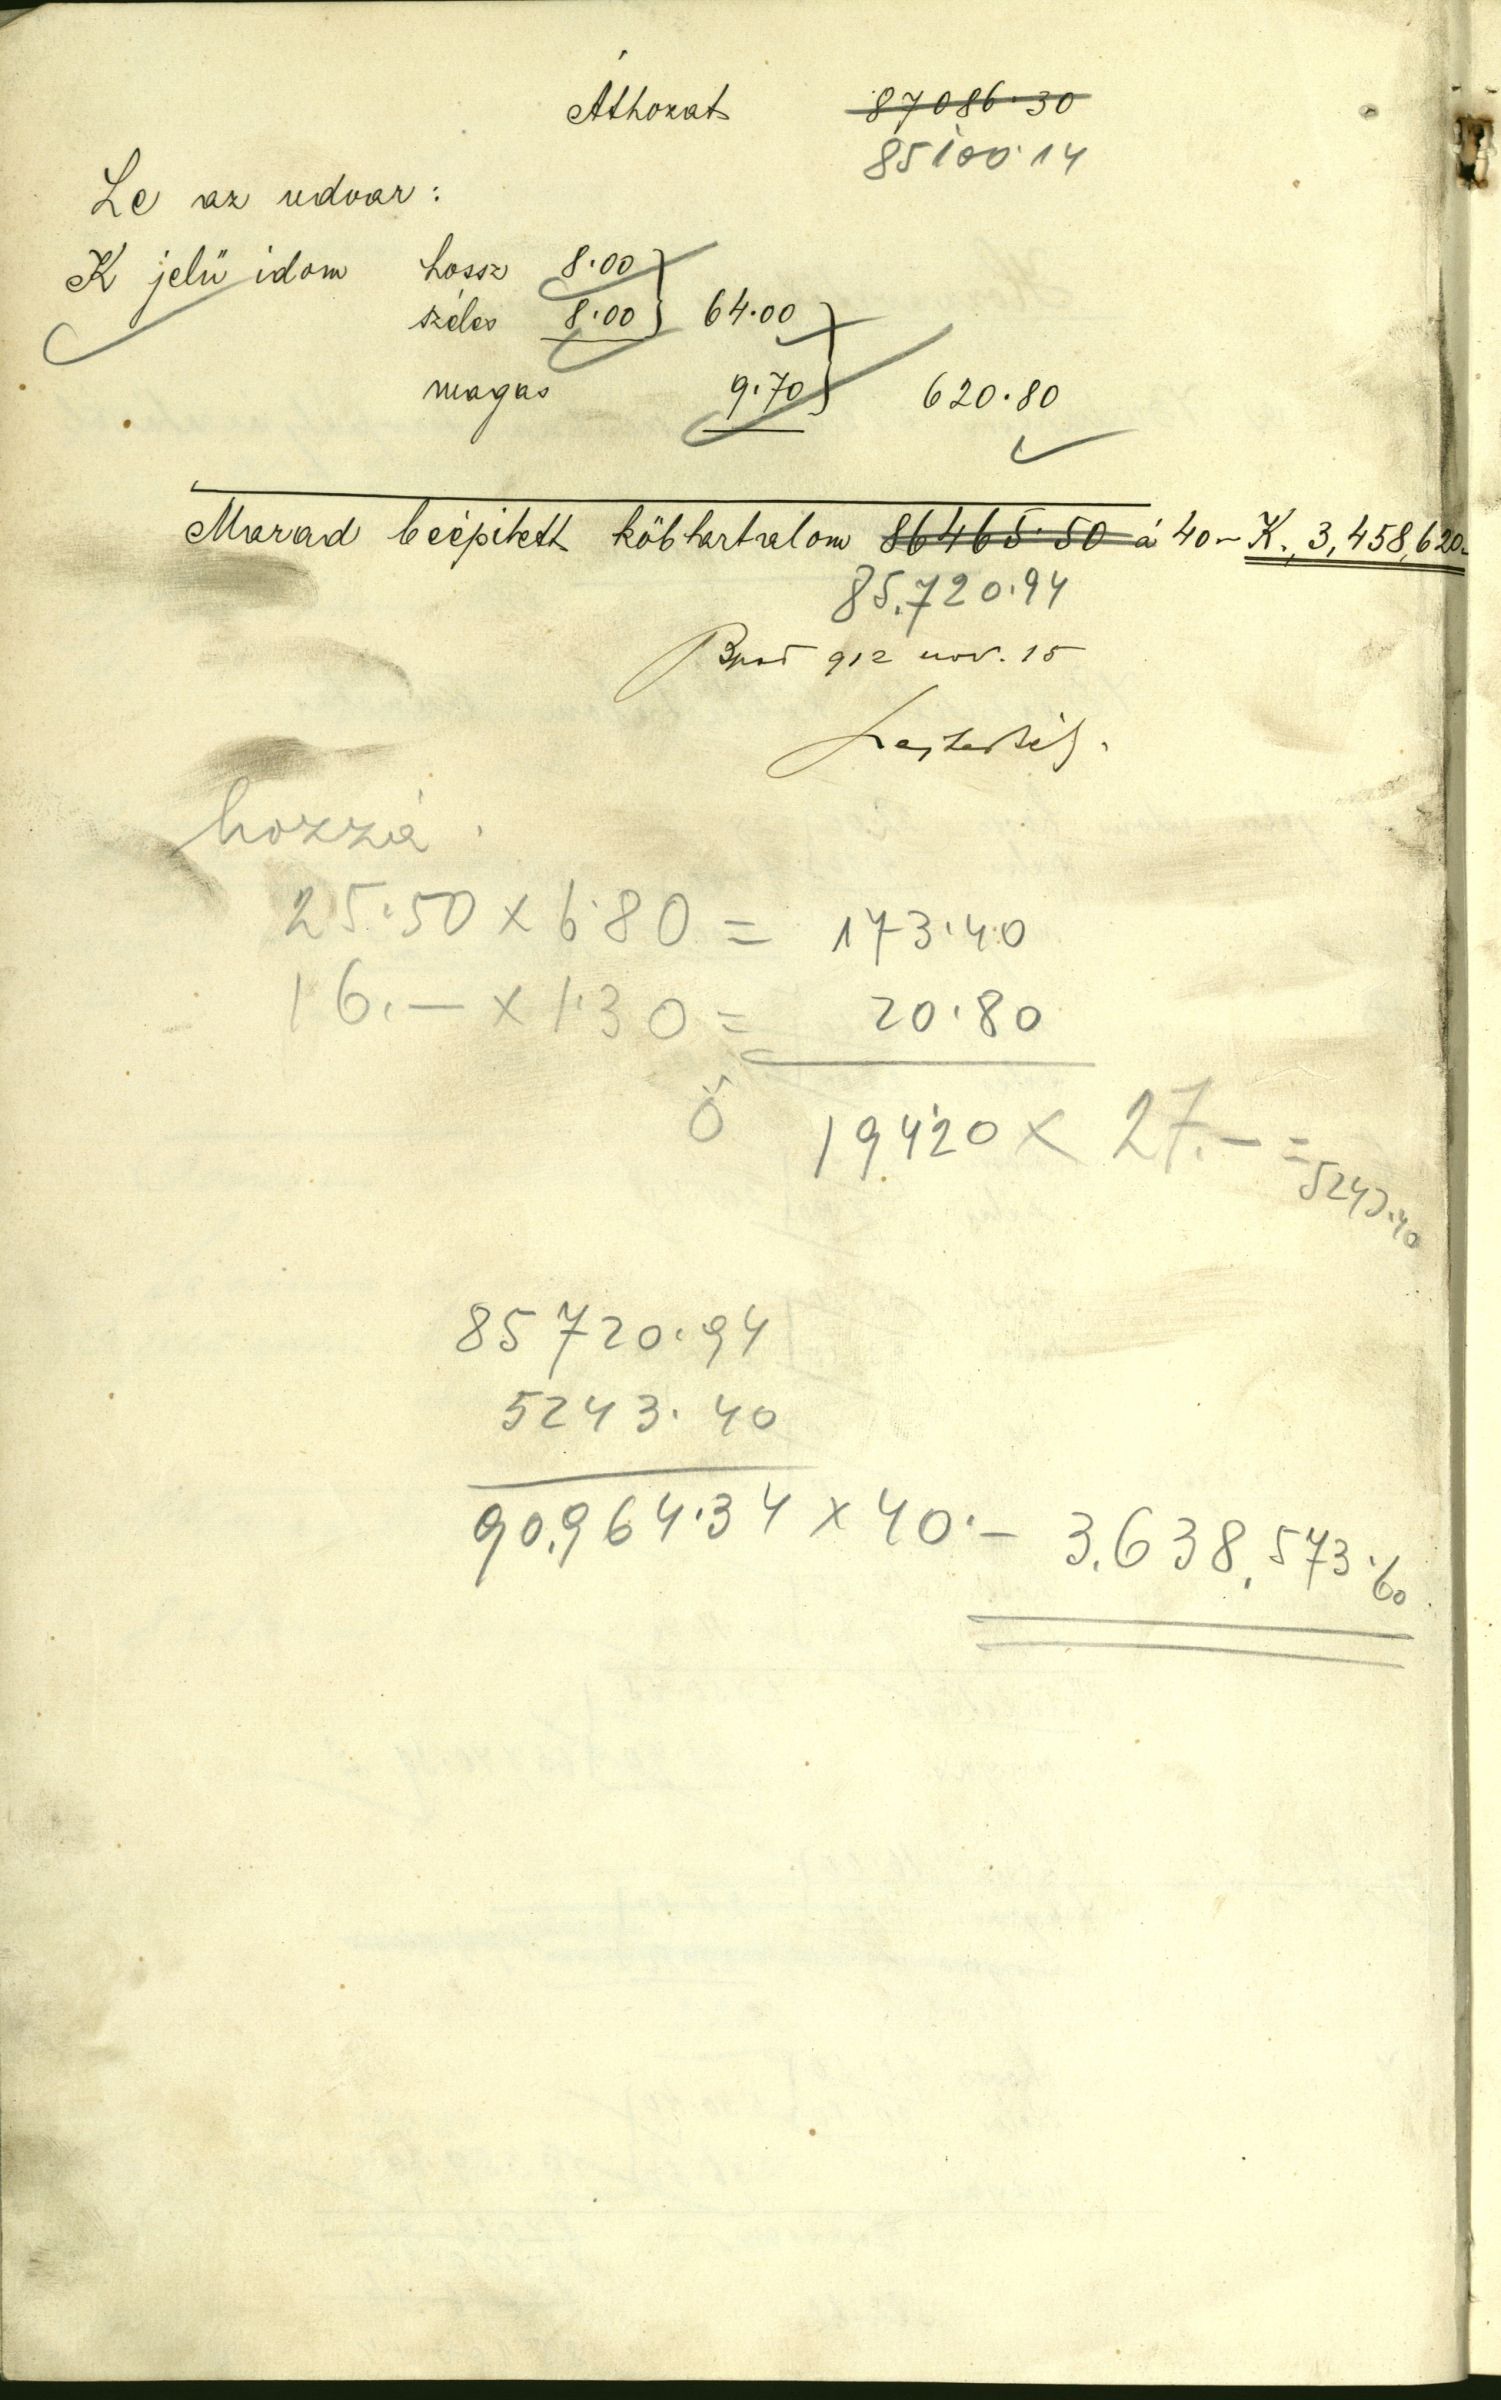 Áthozat 87086.30
85100.14
Le az udvar:
K jelü idom hossz 8.00
széles 8.00 64.00
magas 9.70 620.80
Marad beépitett köbtartalom 86465.50 á 40.- K. 3,458,620.-
85.720.94
Bpest 912 nov. 15
hozzá.
25.50 x 6.80 = 173.40
16.- x 1.30 = 20.80
194.20 x 27.- =
5243.40
85720.94
5243.40
90.964.34 x 40.- 3.638.573.60